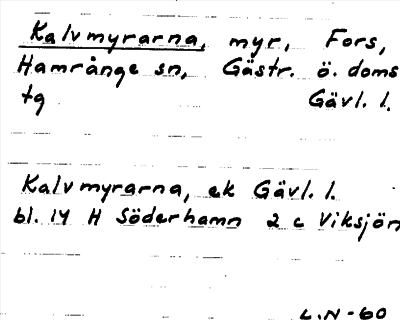 Kalvmyrarna, myr, Fors,
Hamrånge sn, Gästr. ö. doms
tg Gävl. l.
Kalvmyrarna, ek Gävl. l.
bl. 14 H Söderhamn 2 c Viksjön
L.N-60